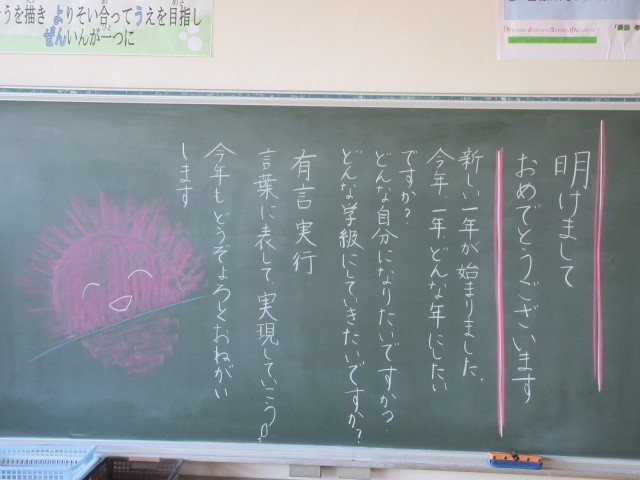 うを描き よりそい合ってうえを目指し
ぜんいんが一つに
明けまして
おめでとうございます
新しい一年が始まりました。
今年、一年、どんな年にしたい
ですか?
どんな自分になりたいですか?
どんな学級にしていきたいですか?
有言実行
言葉に表して、実現していこう。
今年もどうぞよろしくおねがい
します